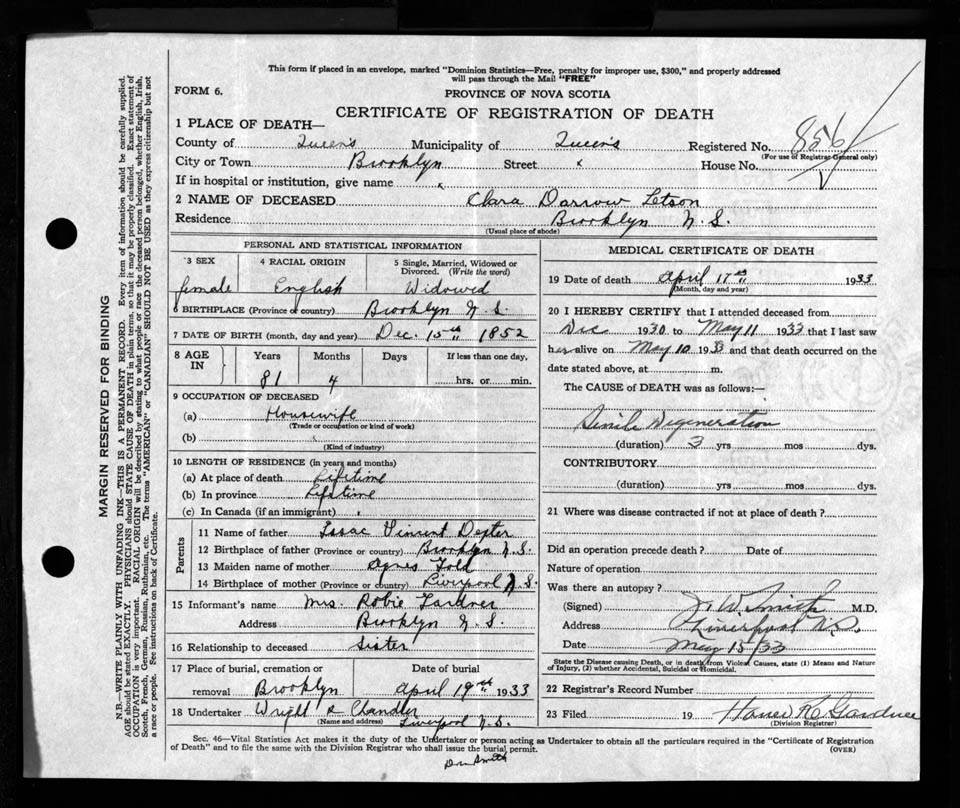 This form if placed in an envelope, marked "Dominion Statistics—Free, penalty for improper use, $300," and properly addressed
will pass through the Mail "FREE"
FORM 6.
PROVINCE OF NOVA SCOTIA
CERTIFICATE OF REGISTRATION OF DEATH
1 PLACE OF DEATH—
County of Queen's Municipality of Queen's Registered No. 856
(For use of Registrar-General only)
City or Town Brooklyn Street x House No.
If in hospital or institution, give name x
2 NAME OF DECEASED Clara Darrow Letson
Residence Brooklyn N.S.
(Usual place of abode)
PERSONAL AND STATISTICAL INFORMATION
3 SEX 4 RACIAL ORIGIN 5 Single, Married, Widowed or
Divorced. (Write the word)
female English Widowed
6 BIRTHPLACE (Province or country) Brooklyn N.S.
7 DATE OF BIRTH (month, day and year) Dec. 15th 1852
8 AGE IN Years Months Days If less than one day,
81 4 hrs. or min.
9 OCCUPATION OF DECEASED
(a) Housewife
(Trade or occupation or kind of work)
(b)
(Kind of industry)
10 LENGTH OF RESIDENCE (in years and months)
(a) At place of death Lifetime
(b) In province Lifetime
(c) In Canada (if an immigrant)
Parents
11 Name of father Isaac Vincent Dexter
12 Birthplace of father (Province or country) Brooklyn N.S.
13 Maiden name of mother Agnes
14 Birthplace of mother (Province or country) Liverpool N.S.
15 Informant's name Mrs. Robie
Address Brooklyn N.S.
16 Relationship to deceased Sister
17 Place of burial, cremation or Date of burial
removal Brooklyn April 19th 1933
18 Undertaker Wright & Chandler
(Name and address) Liverpool N.S.
MEDICAL CERTIFICATE OF DEATH
19 Date of death April 17th 1933
(Month, day and year)
20 I HEREBY CERTIFY that I attended deceased from
Dec 1930 to May 11 1933 that I last saw
her alive on May 10 1933 and that death occurred on the
date stated above, at m.
The CAUSE of DEATH was as follows:—
Senile Degeneration
(duration) 3 yrs mos dys.
CONTRIBUTORY
(duration) yrs. mos. dys.
21 Where was disease contracted if not at place of death?
Did an operation precede death? Date of
Nature of operation
Was there an autopsy?
(Signed) J. W. Smith M.D.
Address Liverpool N.S.
Date May 15/33
State the Disease causing Death, or in death from Violent Causes, state (1) Means and Nature
of Injury, (2) whether Accidental, Suicidal or Homicidal.
22 Registrar's Record Number
23 Filed 19
(Division Registrar)
Sec. 46—Vital Statistics Act makes it the duty of the Undertaker or person acting as Undertaker to obtain all the particulars required in the "Certificate of Registration
of Death" and to file the same with the Division Registrar who shall issue the burial permit.
(OVER)
Dr Smith
MARGIN RESERVED FOR BINDING
N.B.—WRITE PLAINLY WITH UNFADING INK—THIS IS A PERMANENT RECORD. Every item of information should be carefully supplied.
AGE should be stated EXACTLY. PHYSICIANS should STATE CAUSE OF DEATH in plain terms, so that it may be properly classified. Exact statement of
OCCUPATION is very important. RACIAL ORIGIN will be described by stating to what people or race the deceased person belonged, whether English, Irish,
Scotch, French, German, Russian, Ruthenian, etc. The terms "AMERICAN" or "CANADIAN" SHOULD NOT BE USED as they express citizenship but not
a race or people. See instructions on back of Certificate.